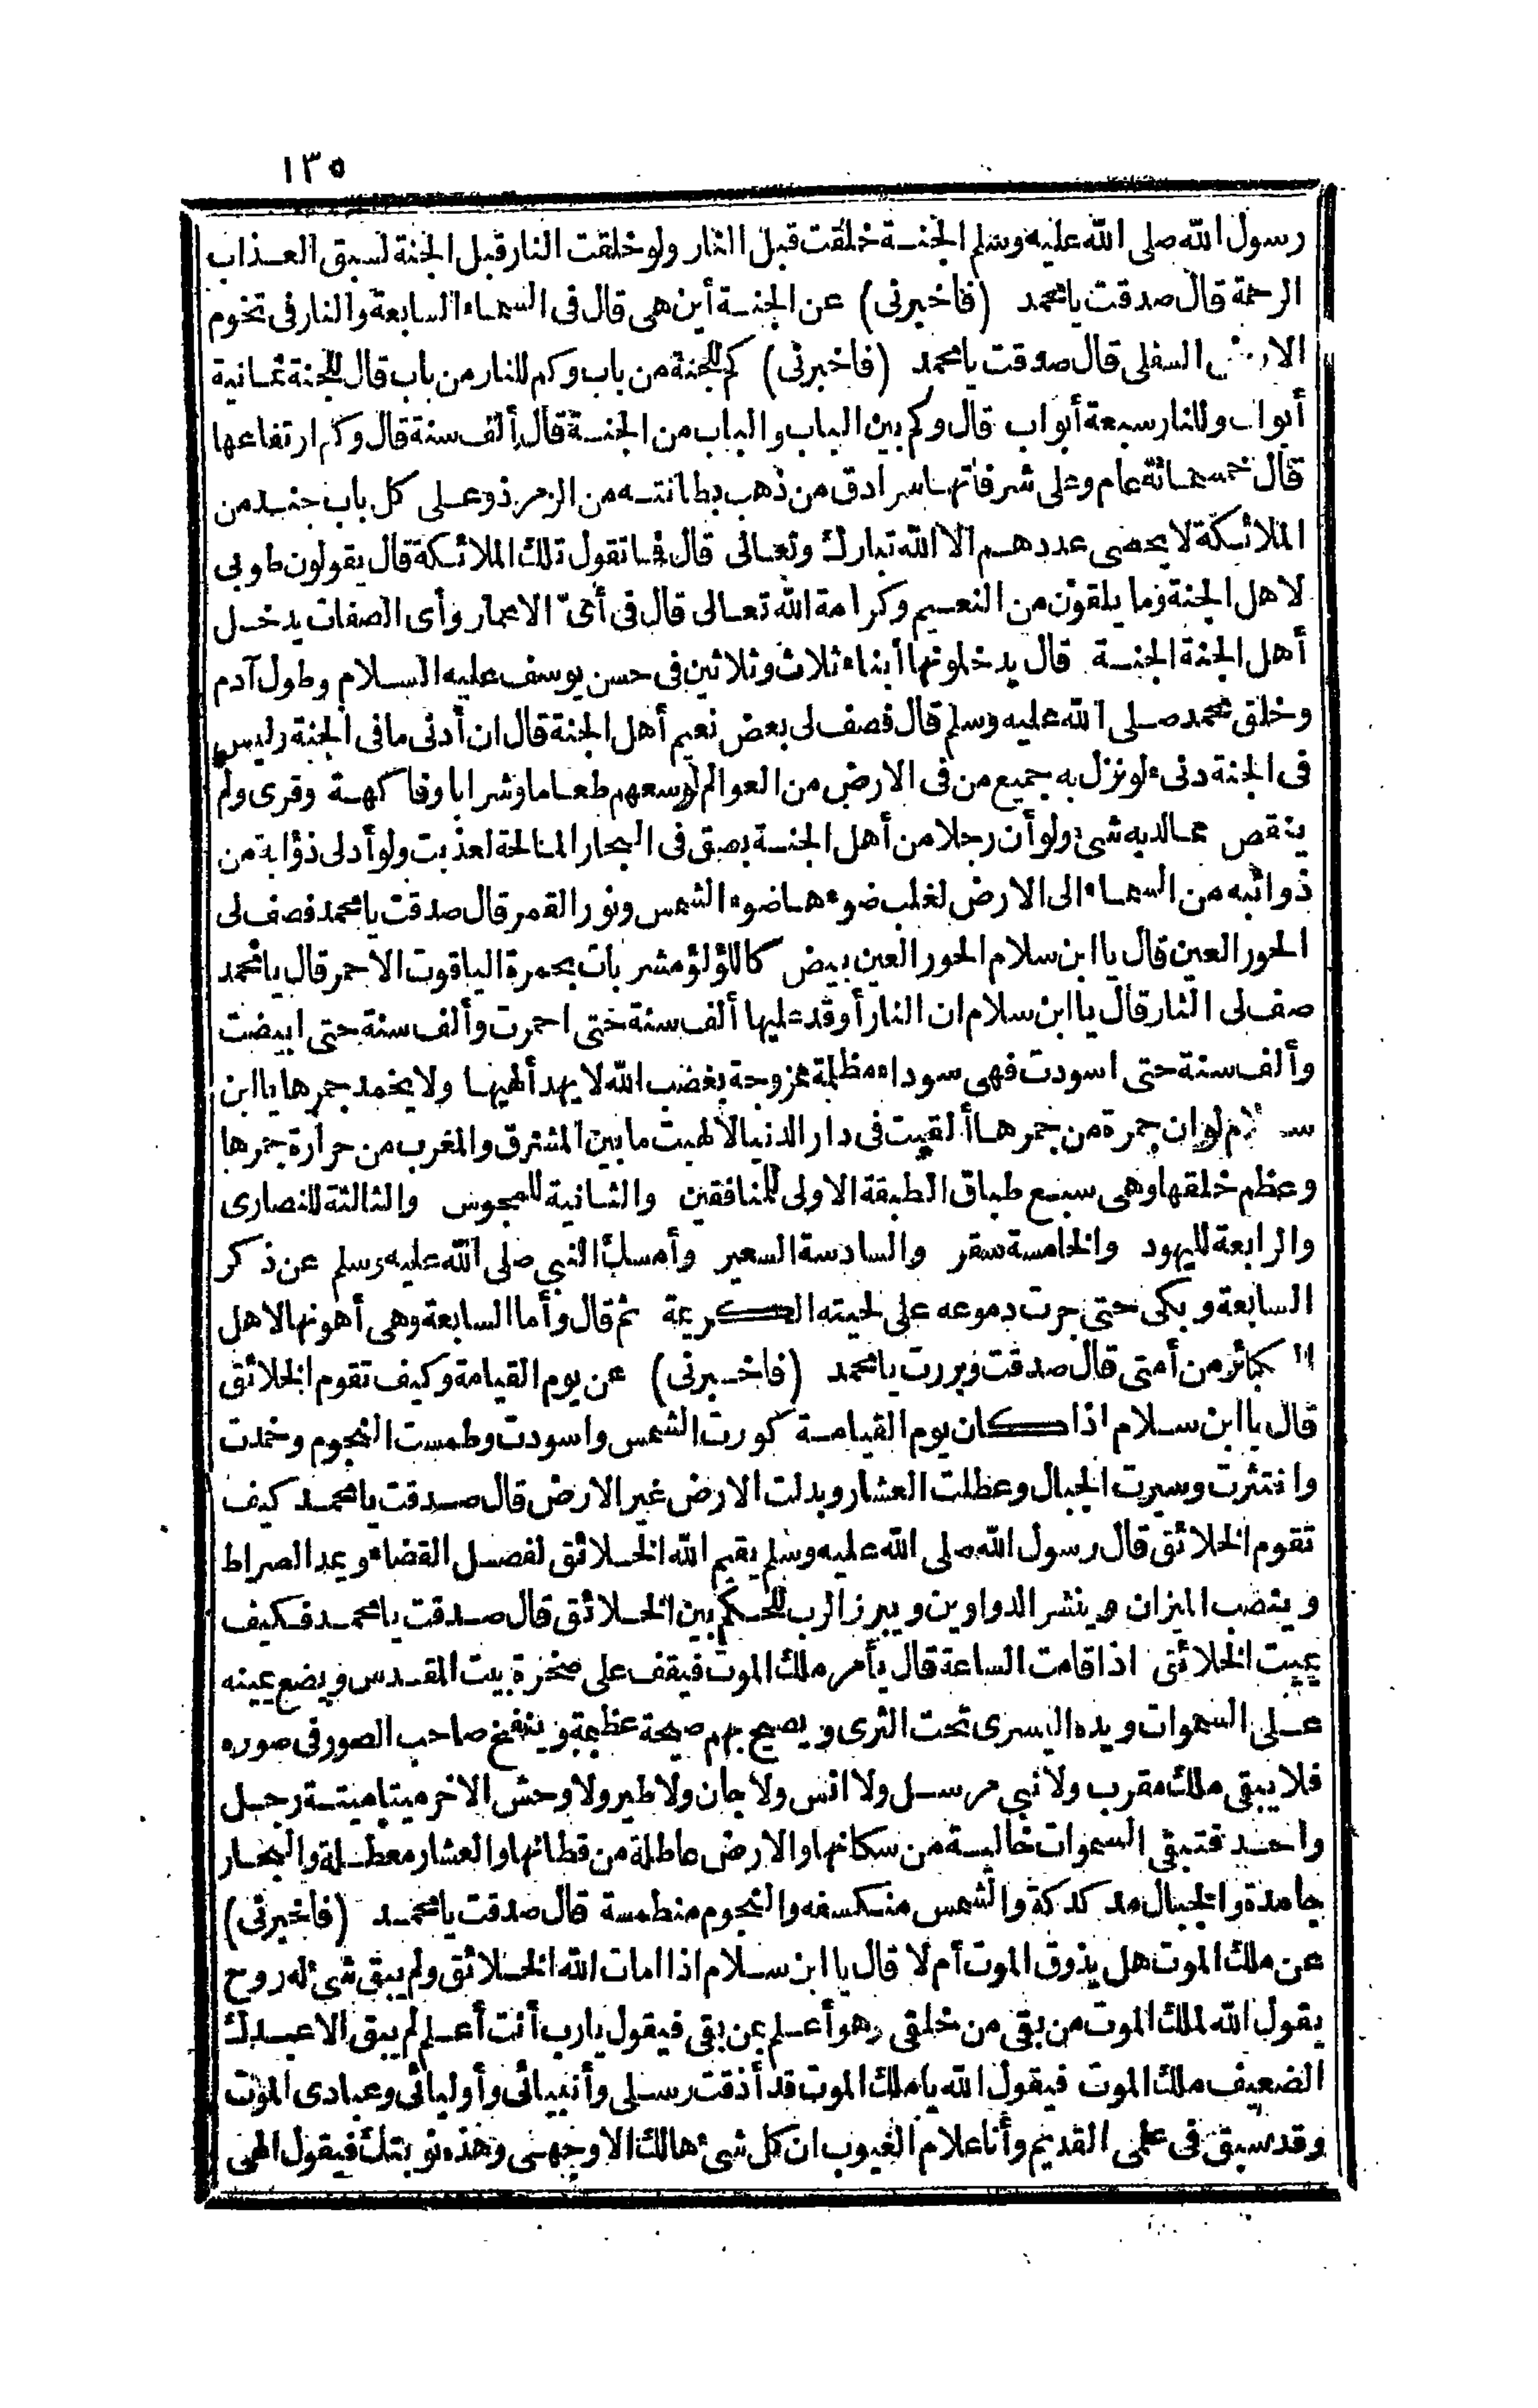 ١٣٥
رسول الله صلى الله عليه وسلم الجنة خلقت قبل النار ولو خلقت النار قبل الجنة لسبق العذاب
الرحمة قال صدقت يا محمد (فاخبرنى) عن الجنة أين هى قال فى السماء السابعة والنار فى تخوم
الارض السفلى قال صدقت يا محمد (فاخبرنى) كم للجنة من باب وكم للنار من باب قال للجنة ثمانية
أبواب وللنار سبعة أبواب قال وكم بين الباب والباب من الجنة قال ألف سنة قال وكم ارتفاعها
قال خمسمائة عام وعلى شرفاتها سرادق من ذهب بطانته من الزمرذ وعلى كل باب جند من
الملائكة لا يحصى عددهم الا الله تبارك وتعالى قال فما تقول تلك الملائكة قال يقولون طوبى
لاهل الجنة وما يلقون من النعيم وكرامة الله تعالى قال فى أىّ الاعمار وأى الصفات يدخل
أهل الجنة الجنة قال يدخلونها أبناء ثلاث وثلاثين فى حسن يوسف عليه السلام وطول آدم
وخلق محمد صلى الله عليه وسلم قال فصف لى بعض نعيم أهل الجنة قال ان أدنى ما فى الجنة وليس
فى الجنة دنىء لو نزل به جميع من فى الارض من العوالم لوسعهم طعاما وشرابا وفاكهة وقرى ولم
ينقص مما لديه شئ ولو أن رجلا من أهل الجنة بصق فى البحار المالحة لعذبت ولو أدلى ذؤابة من
ذوائبه من السماء الى الارض لغلب ضوءها ضوء الشمس ونور القمر قال صدقت يا محمد فصف لى
الحور العين قال يا ابن سلام الحور العين بيض كاللؤلؤ مشربات بحمرة الياقوت الاحمر قال يا محمد
صف لى النار قال يا ابن سلام ان النار أوقد عليها ألف سنة حتى احمرت وألف سنة حتى ابيضت
وألف سنة حتى اسودت فهى سوداء مظلمة ممزوجة بغضب الله لا يهدأ لهيبها ولا يخمد جمرها يا ابن
سلام لو ان جمرة من جمرها ألقيت فى دار الدنيا لألهبت ما بين المشرق والمغرب من حرارة جمرها
وعظم خلقها وهى سبع طباق الطبقة الاولى للمنافقين والثانية للمجوس والثالثة للنصارى
والرابعة لليهود والخامسة سقر والسادسة السعير وأمسك النبى صلى الله عليه وسلم عن ذكر
السابعة وبكى حتى جرت دموعه على لحيته الكريمة ثم قال وأما السابعة وهى أهونها لاهل
الكبائر من أمتى قال صدقت وبررت يا محمد (فاخبرنى) عن يوم القيامة وكيف تقوم الخلائق
قال يا ابن سلام اذا كان يوم القيامة كورت الشمس واسودت وطمست النجوم وخمدت
وانتثرت وسيرت الجبال وعطلت العشار وبدلت الارض غير الارض قال صدقت يا محمد كيف
تقوم الخلائق قال رسول الله صلى الله عليه وسلم يقيم الله الخلائق لفصل القضاء ويمد الصراط
وينصب الميزان وينشر الدواوين ويبرز الرب للحكم بين الخلائق قال صدقت يا محمد فكيف
يميت الخلائق اذا قامت الساعة قال يأمر ملك الموت فيقف على صخرة بيت المقدس ويضع يمينه
على السموات ويده اليسرى تحت الثرى ويصيح بهم صيحة عظيمة وينفخ صاحب الصور فى صوره
فلا يبقى ملك مقرب ولا نبى مرسل ولا انس ولا جان ولا طير ولا وحش الا خر ميتا ميتة رجل
واحد فتبقى السموات خالية من سكانها والارض عاطلة من قطانها والعشار معطلة والبحار
جامدة والجبال مدكدكة والشمس منكسفة والنجوم منطمسة قال صدقت يا محمد (فاخبرنى)
عن ملك الموت هل يذوق الموت أم لا قال يا ابن سلام اذا امات الله الخلائق ولم يبق شئ له روح
يقول الله لملك الموت من بقى من خلقى وهو أعلم بمن بقى فيقول يا رب أنت أعلم لم يبق الا عبدك
الضعيف ملك الموت فيقول الله يا ملك الموت قد أذقت رسلى وأنبيائى وأوليائى وعبادى الموت
وقد سبق فى علمى القديم وأنا علام الغيوب ان كل شئ هالك الا وجهى وهذه نوبتك فيقول الهى